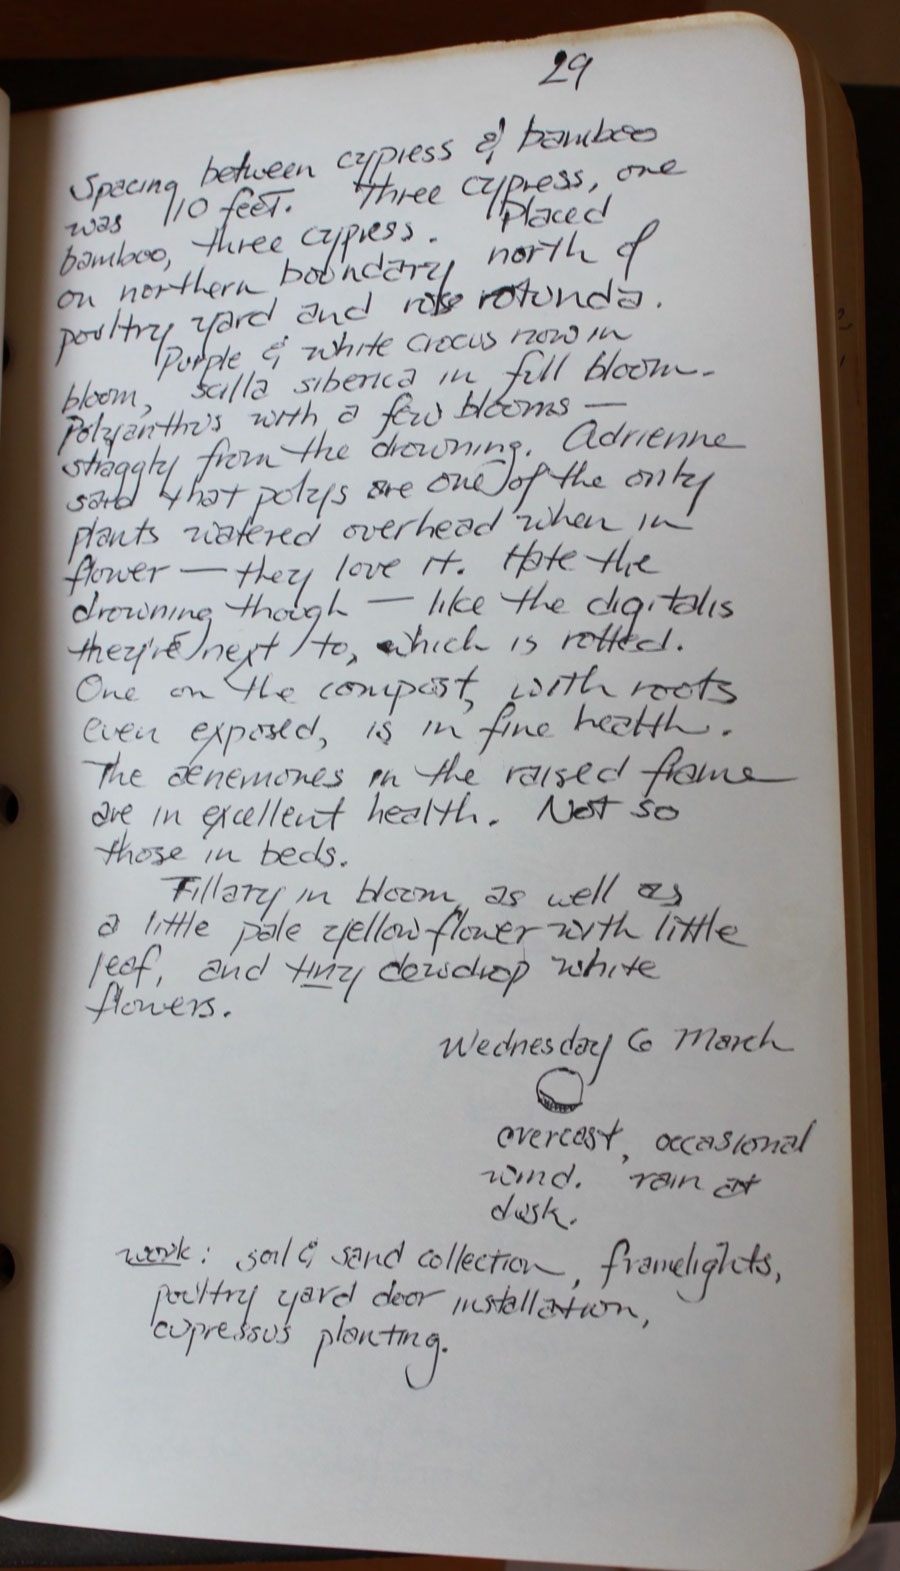 29
Spacing between cypress & bamboo
was 10 feet. Three cypress, one
bamboo, three cypress. Placed
on northern boundary north of
poultry yard and rose rotunda.
Purple & white crocus now in
bloom, scilla siberica in full bloom.
Polyanthus with a few blooms —
straggly from the drowning. Adrienne
said that polys are one of the only
plants watered overhead when in
flower — they love it. Hate the
drowning though — like the digitalis
they're next to, which is rotted.
One on the compost, with roots
even exposed, is in fine health.
The aenemones in the raised frame
are in excellent health. Not so
those in beds.
Fillary in bloom, as well as
a little pale yellow flower with little
leaf, and tiny dewdrop white
flowers.
Wednesday 6 March
overcast, occasional
wind. rain at
dusk.
work: soil & sand collection, framelights,
poultry yard door installation,
cupressus planting.